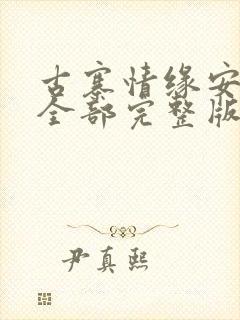 古寨情缘安
全部完整版
尹真熙